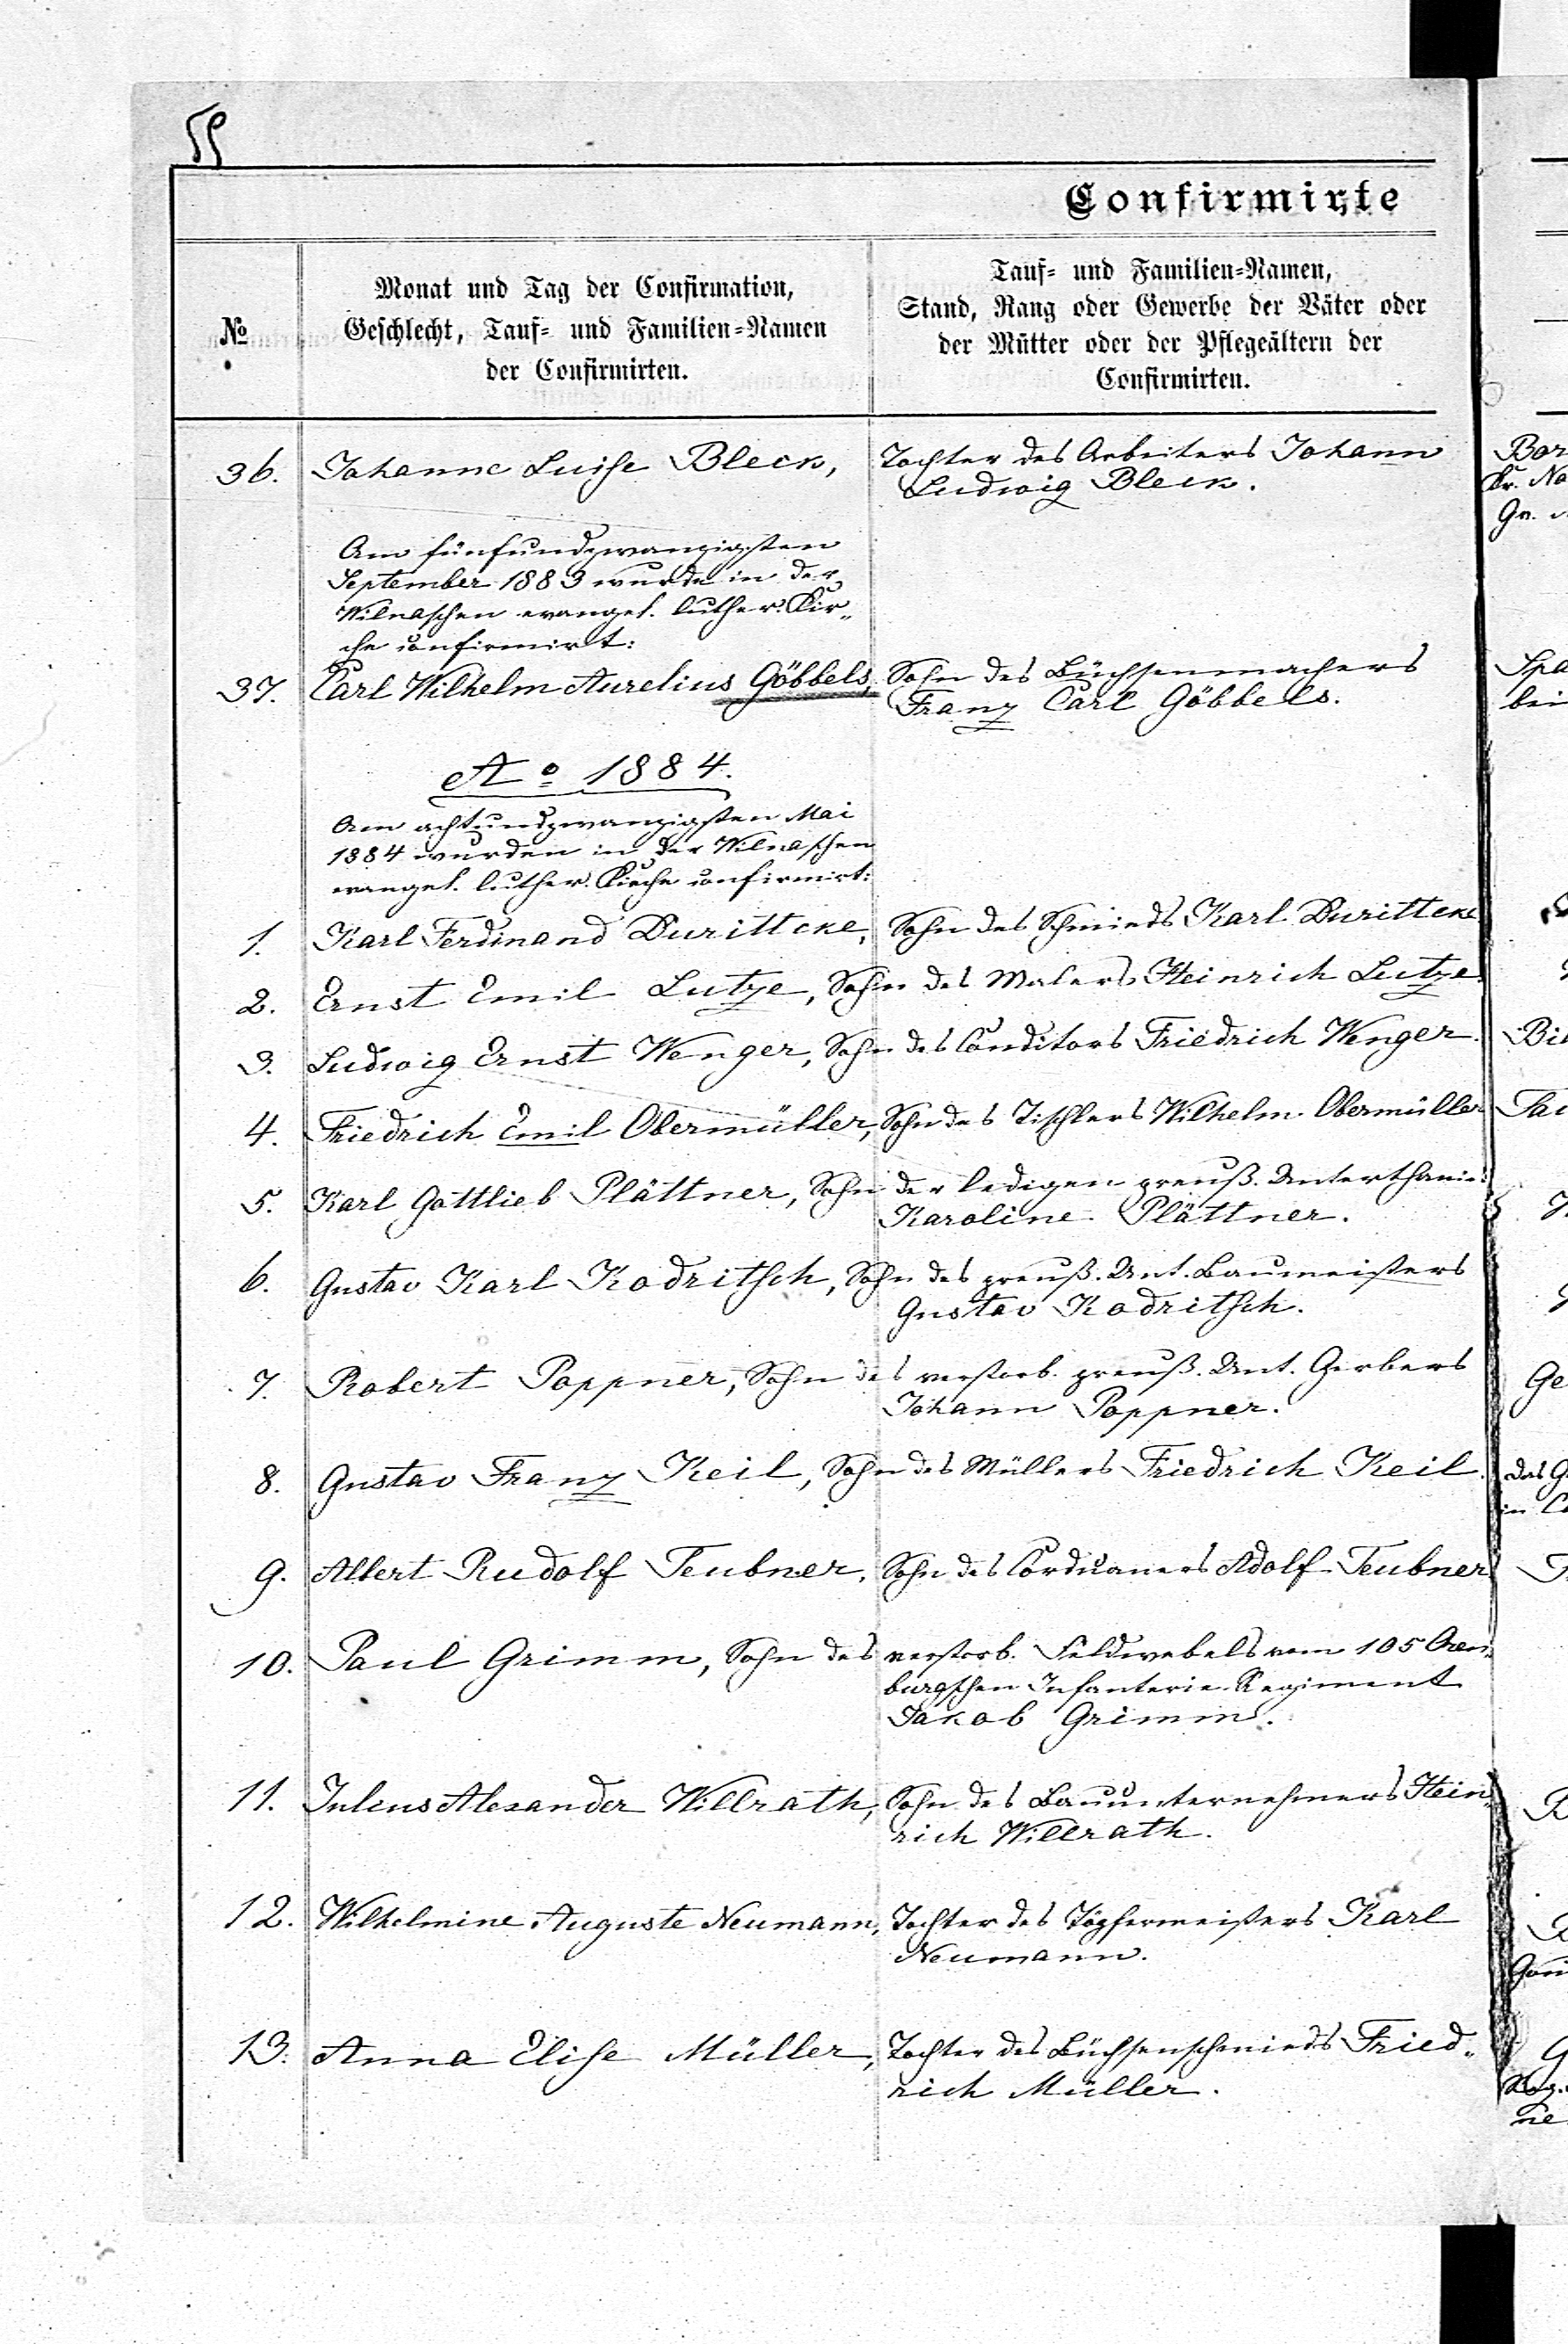 59
Confirmirte
№
Monat und Tag der Confirmation,
Geschlecht, Tauf- und Familien-Namen
der Confirmirten.
Tauf- und Familien-Namen,
Stand, Rang oder Gewerbe der Väter oder
der Mütter oder der Pflegeältern der
Confirmirten.
36. Johanne Luise Bleck, Tochter des Arbeiters Johann
Ludwig Bleck.
Am fünfundzwanzigsten
September 1883 wurde in der
Wilnaschen evangel. luther. Kir-
che confirmirt:
37. Carl Wilhelm Aurelius Göbbels, Sohn des Büchsenmachers
Franz Carl Göbbels.
Ao 1884.
Am achtundzwanzigsten Mai
1884 wurden in der Wilnaschen
evangel. luther. Kirche confirmirt:
1. Karl Ferdinand Durittcke, Sohn des Schmieds Karl Durittcke
2. Ernst Emil Lutze, Sohn des Malers Heinrich Lutze.
3. Ludwig Ernst Wenger, Sohn des Conditors Friedrich Wenger.
4. Friedrich Emil Obermüller, Sohn des Tischlers Wilhelm Obermüller
5. Karl Gottlieb Plättner, Sohn der ledigen preuß. Unterthanin
Karoline Plättner.
6. Gustav Karl Kodritsch, Sohn des preuß. Unt. Baumeisters
Gustav Kodritsch.
7. Robert Poppner, Sohn des verstorb. preuß. Unt. Gerbers
Johann Poppner.
8. Gustav Franz Keil, Sohn des Müllers Friedrich Keil.
9. Albert Rudolf Teubner, Sohn des Corduaners Adolf Teubner
10. Paul Grimm, Sohn des verstorb. Feldwebels vom 105 Oren-
burgschen Infanterie Regiment
Jakob Grimm.
11. Julius Alexander Willrath, Sohn des Bauunternehmers Hein-
rich Willrath.
12. Wilhelmine Auguste Neumann, Tochter des Töpfermeisters Karl
Neumann.
13. Anna Elise Müller, Tochter des Büchsenschmieds Fried-
rich Müller.